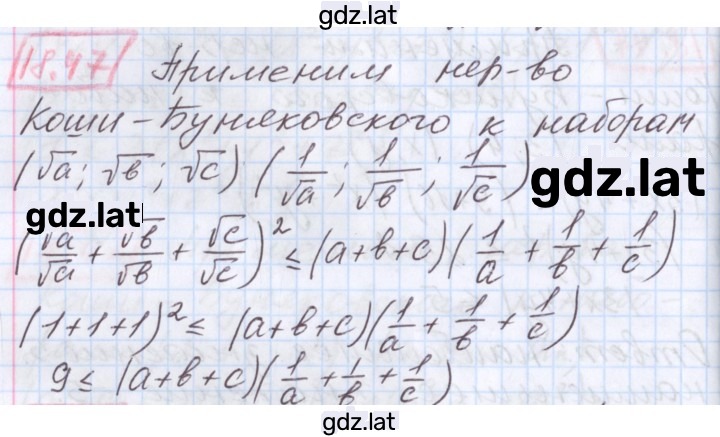 gdz.lat
18.47 Применим нер-во
Коши-Буняковского к наборам
(√a; √b; √c) (1/√a; 1/√b; 1/√c)
gdz.lat
gdz.lat
(√a/√a + √b/√b + √c/√c)² ≤ (a+b+c)(1/a + 1/b + 1/c)
(1+1+1)² ≤ (a+b+c)(1/a + 1/b + 1/c)
9 ≤ (a+b+c)(1/a + 1/b + 1/c)
gdz.lat